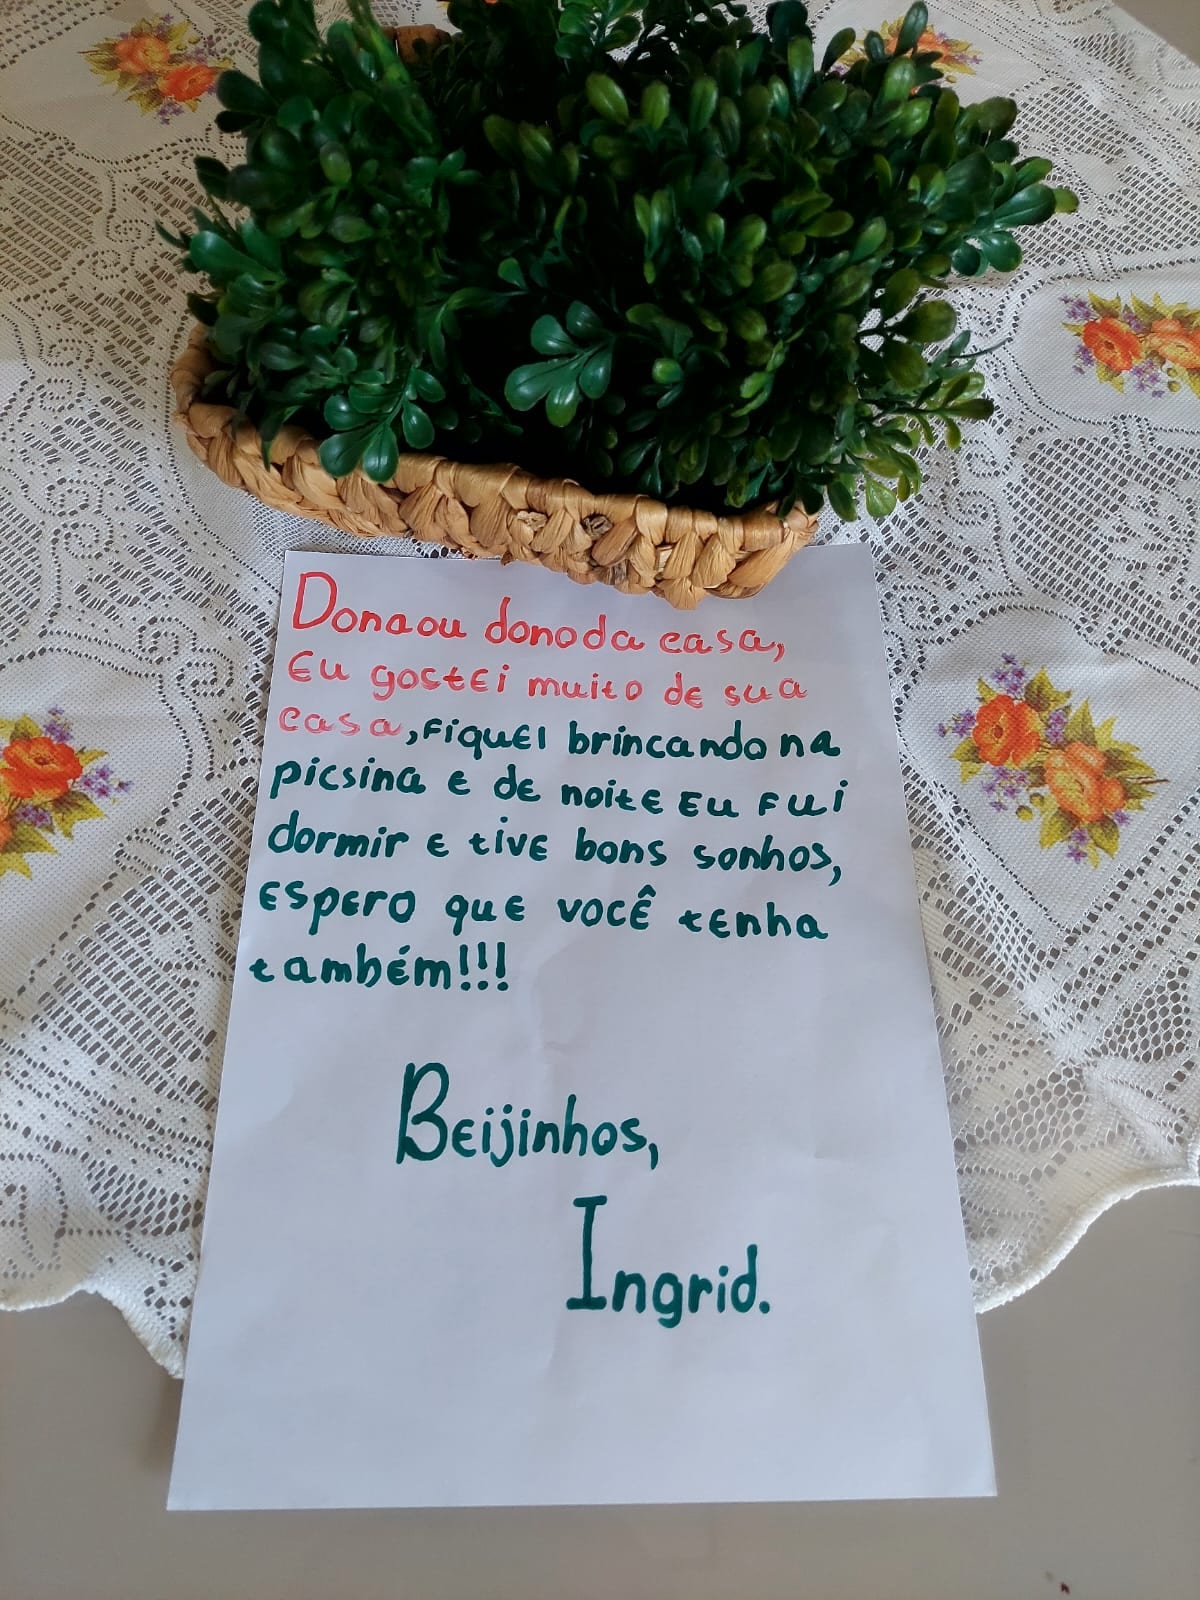 Dona ou dono da casa,
Eu gostei muito de sua
casa, fiquei brincando na
picsina e de noite eu fui
dormir e tive bons sonhos,
espero que você tenha
também!!!
Beijinhos,
Ingrid.